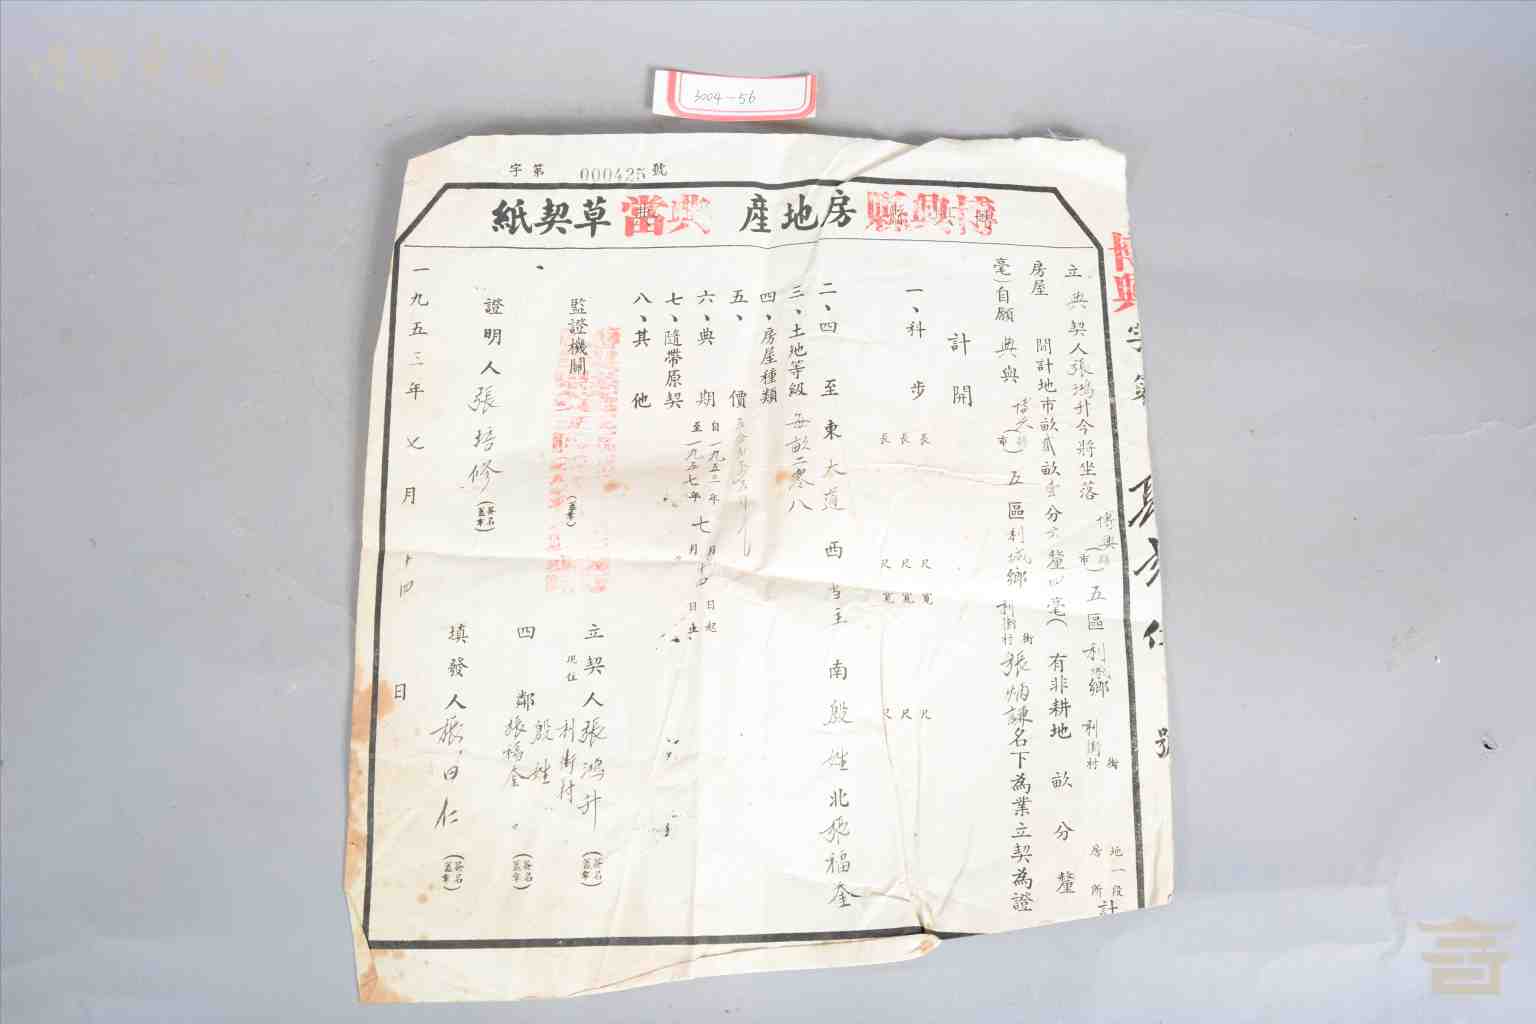 3004-56
字第000425號
博興縣房地產典當草契紙
博興字第 號
立典契人張鴻升今將坐落博興縣(市)五區利城鄉利街村街地一段房所計
房屋 間計地市畝貳畝壹分六釐四毫(有非耕地 畝 分 釐
毫)自願典與博興縣(市)五區利城鄉利街村街張炳謙名下為業立契為證
計開
一、科步 長 尺寬 尺
長 尺寬 尺
長 尺寬 尺
二、四至東大道 西當主 南殷姓北張福奎
三、土地等級每畝二零八
四、房屋種類
五、 價
六、典期自一九五三年七月十四日起
至一九五七年 月 日止
七、隨帶原契
八、其他
監證機關 (蓋章)
立契人張鴻升(簽名蓋章)
現住利街村
四鄰殷姓
張福奎(簽名蓋章)
證明人張培修(簽名蓋章)
填發人張曰仁(簽名蓋章)
一九五三年七月十四日